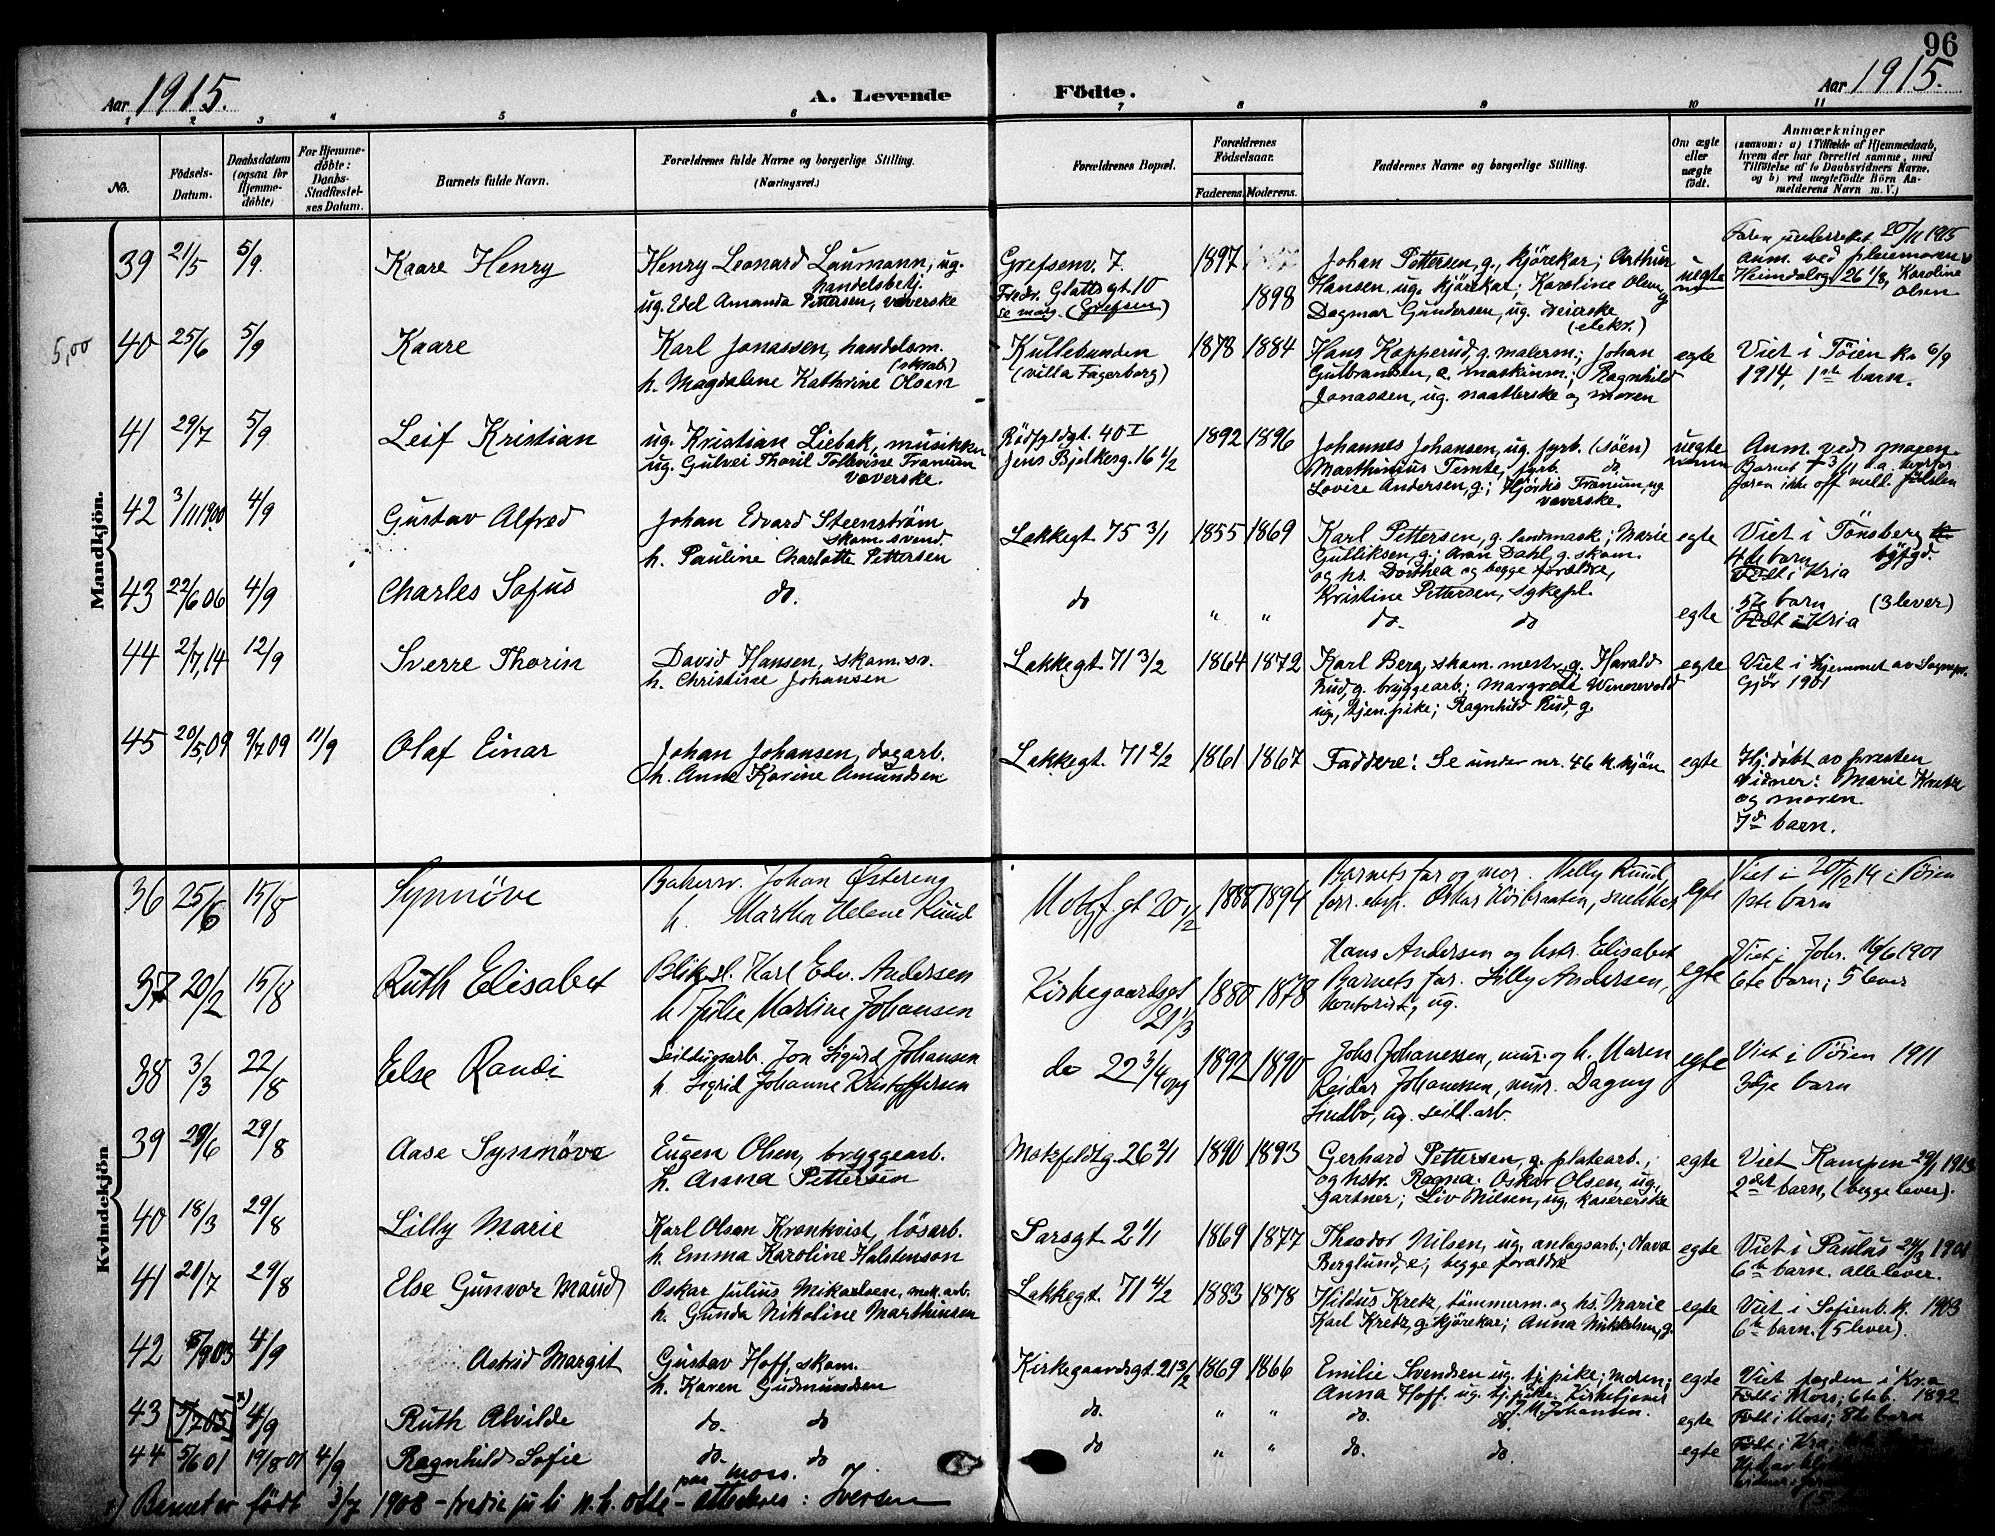 96
Aar 1915.
A. Levende Födte.
Aar 1915.
1 2 3 4 5 6 7 8 9 10 11
No.
Födsels-
Datum.
Daabsdatum
(ogsaa for
Hjemme-
döbte)
For Hjemme-
döbte:
Daabs-
Stadfæstel-
ses Datum.
Barnets fulde Navn.
Forældrenes fulde Navne og borgerlige Stilling.
(Næringsvei.)
Forældrenes Bopæl.
Forældrenes
Födselsaar.
Faderens. Moderens.
Faddernes Navne og borgerlige Stilling.
Om ægte
eller
uægte
födt.
Anmærkninger
(saasom: a) i Tilfælde af Hjemmedaab,
hvem der har forrettet samme, med
Tilföielse af to Daabsvidners Navne,
og b) ved uegtefödte Börn An-
melderens Navn m. V.)
Mandkjön.
39 21/5 5/9. Kaare Henry
Henry Leonard Laumann, ug.
handelsbetj.
ug. Edel Amanda Pettersen, væverske
Grefsenv. 7.
Fredr. Glattsgt 10
(Grefsen)
1897
1898
Johan Pettersen, g., kjörekar; Arthur
Hansen, ug. kjörekar; Karoline Olsen, g
Dagmar Gundersen, ug. veierske
(elekr.)
uegte
Faren underrettet 20/11 1915
anm. ved pleiemoren
Heimdalsg. 26 1/3, Karoline
Olsen
5,00
40 25/6 5/9 Kaare
Karl Jonassen, handelsm.
(skrab)
h. Magdalene Kathrine Olsen
Kullebunden
(villa Fagerborg)
1878 1884
Hans Kopperud, g. malerm.; Johan
Gulbrandsen, e. maskinm.; Ragnhild
Jonassen, ug. naatlerske og moren
egte
Viet i Töien k. 6/9
1914, 1ste barn.
41 29/7 5/9 Leif Kristian
ug. Kristian Liebak, musikker
ug. Gulvei Thoril Tollevine Franum
væverske.
Rödfyldgt. 40 I
Jens Bjelkesg. 16 1/2
1892 1896
Johannes Johansen, ug. fyrb. (söen)
Marthinius Timte, fyrb. do.
Lovise Andersen, g.; Hjördis Franum, ug
væverske.
uegte
Anm. ved moren.
Barnet † 3/11 d.a. hvorfor
faren ikke off meld. födslen
42 3/11 1900 4/9 Gustav Alfred
Johan Edvard Steenström
skom. svend.
h. Pauline Charlotte Pettersen
Lakkegt 75 3/1
1855 1869
Karl Pettersen, g. landmask.; Marie
Gulliksen, g.; Aron Dahl, g. skom.
og hs. Dorthea og begge forældre,
Kristine Pettersen, sykepl.
egte
Viet i Tönsberg
4de barn byfgd.
Födt i Kria
43 22/6 06 4/9 Charles Sofus
do.
do
" "
do. do
egte
5te barn (3 lever)
Födt i Kria
44 2/7, 14 12/9 Sverre Thorin
David Hansen, skom. sv.
h. Christine Johansen
Lakkegt. 71 3/2
1864 1872
Karl Berg, skom. mestr, g. Harald
Rud, g. bryggearb.; Margrete Wennevold
ug., tjen. pike; Ragnhild Rud, g.
egte
Viet i Hjemmet av Sognepr.
Gjör 1901
45 20/5, 09 9/7 09 11/9 Olaf Einar
Johan Johansen, dagarb.
h. Anne Karine Amundsen
Lakkegt. 71 2/2
1861 1867
Faddere: Se under nr. 46 k. kjön
egte
Hj. döbt av presten
Vidner: Marie Kretz
og moren.
7de barn.
Kvindekjön
36 25/6 15/8 Synnöve
Bakersv. Johan Østereng
h. Martha Helene Ruud
Motzf. gt 20 1/2
1885 1894
Barnets far og mor. Nelly Ruud,
forr. eksp. Oskar Höibraaten, snekker
egte
Viet i 20/12 14 i Töien
1ste barn
37 20/2 15/8 Ruth Elisabet
Bliksl. Karl Edv. Andersen
h Julie Martine Johansen
Kirkegaardsgt
21 1/3
1880 1878
Hans Andersen og hstr. Elisabet
Barnets far. Lilly Andersen,
kontorist, ug.
egte
Viet i Joh. 16/6 1901
6te barn; 5 lever
38 3/3 22/8 Else Randi
Seildugsarb. Jon Sigurd Johansen
h. Sigrid Johanne Kristoffersen
do 22 3/4 opg
1892 1890
Johs Johanessen, mur. og h. Maren
Reidar Johanessen, mur. Dagny
Lindbo, ug. seild. arb.
egte
Viet i Töien 1911
3dje barn
39 29/6 29/8 Aase Synnöve
Eugen Olsen, bryggearb.
h. Anna Pettersen
Motzfeldtg. 26 2/1
1890 1893
Gerhard Pettersen, g. platearb.;
og hstr. Ragna. Oskar Olsen, ug.
gartner; Liv Nilsen, ug. kasererske
egte
Viet Kampen 29/1 1913
2det barn, (begge lever).
40 18/3 29/8 Lilly Marie
Karl Olsen Kronkvist, lösarb.
h. Emma Karoline Halstenson
Sarsgt. 2 1/1
1869 1877
Theodor Nilsen, ug. anlægsarb.; Olava
Berglund, e; begge forældre
egte
Viet i Paulus 24/3 1901
6te barn. alle lever.
41 21/7 29/8 Else Gunvor Maud
Oskar Julius Mikaelsen, mek. arb.
h. Gunda Nikoline Marthinsen
Lakkegt. 71 4/2
1883 1878
Nilius Kretz, tömmerm. og hs. Marie
Karl Kretz, g. kjörekar; Anna Mikkelsen, g.
egte
Viet i Sofienb. k. 1903
6te barn. (5 lever).
42 5/9 03 4/9 Astrid Margit
Gustav Hoff, skom.
h. Karen Gudmundsen
Kirkegaardsgt. 21 3/2
1869 1866
Emilie Svendsen ug. tj. pike; moren;
Anna Hoff. ug. tj. pike. Kirketjener
J. M. Johansen.
egte
Viet i Kr.a
Födt i Moss; 6te b. 1892
43 [5/7 05] x) 4/9 Ruth Alvilde
do do
do.
" "
do. do.
egte
Födt i Moss; 8de barn
44 5/6 01 19/8 01 4/9 Ragnhild Sofie
do. do
do
" "
do. do.
egte
Födt i Kra;
x) Barnet er födt 3/7 1908 – tredie juli n. h. otte – Attesteres: Iversen
paa Moss.